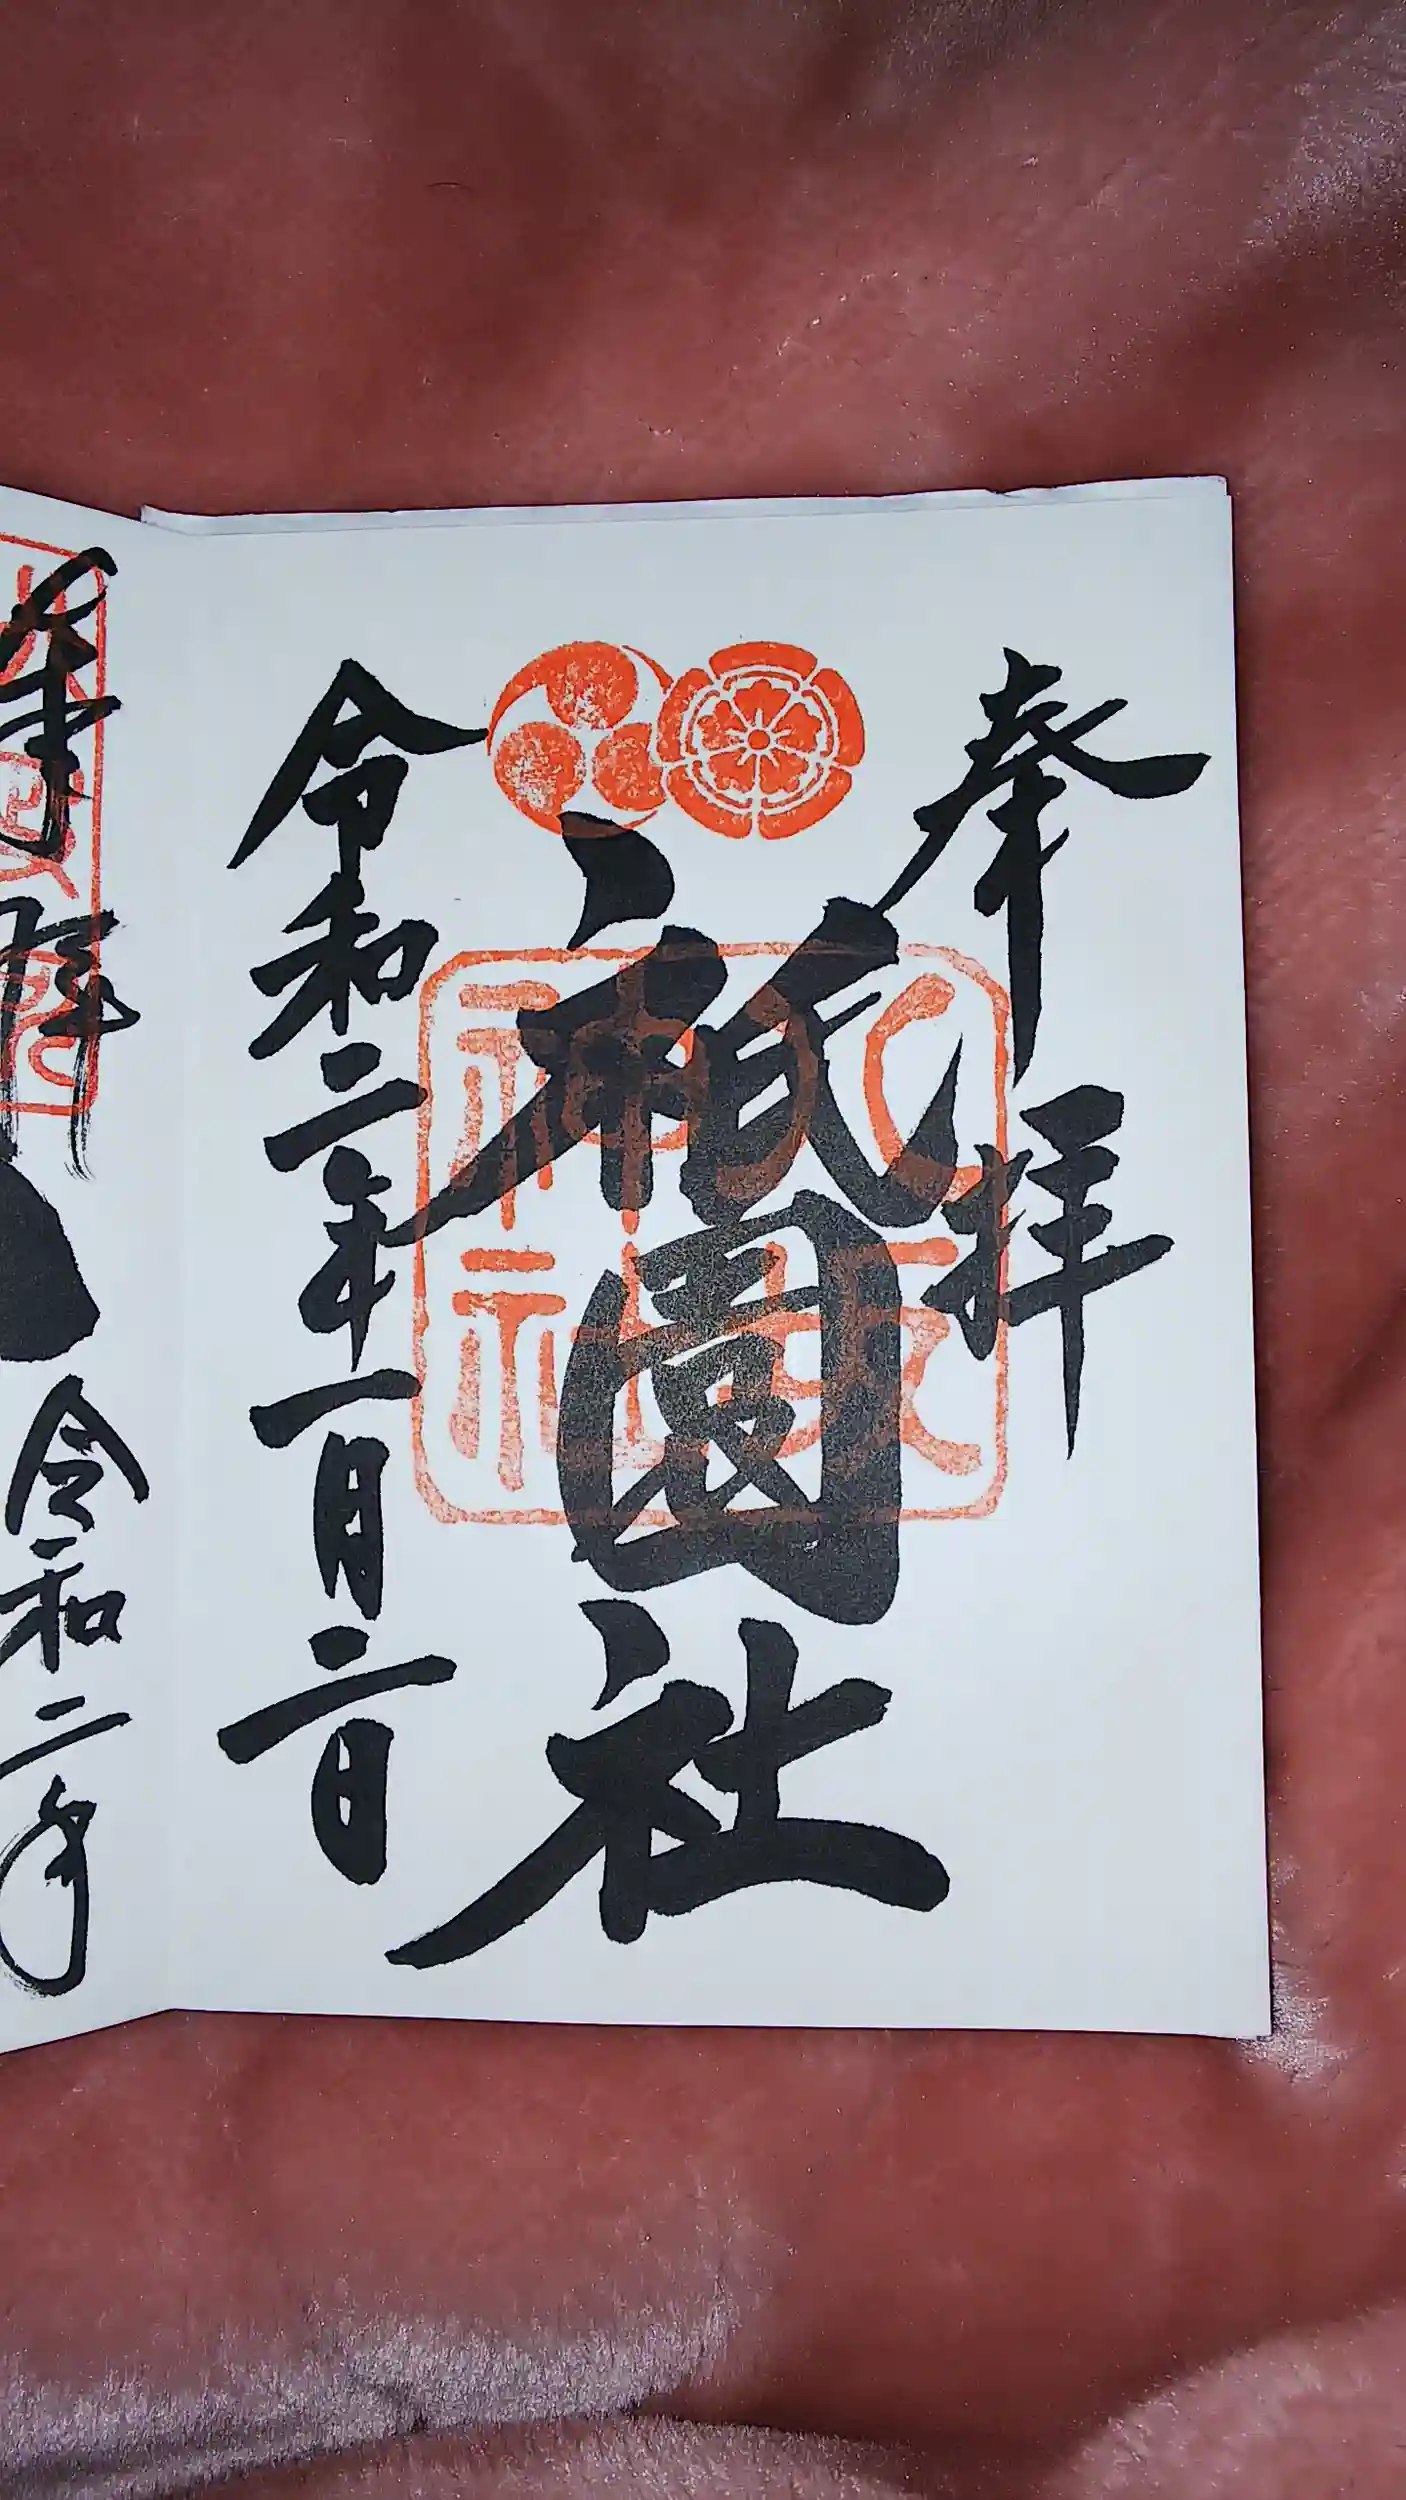 奉拝
祇園社
八坂神社
令和二年一月二日
奉拝
令和二年